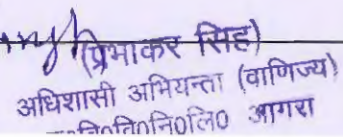 (प्रभाकर सिंह)
अधिशासी अभियन्ता (वाणिज्य)
वि०नि०लि० आगरा